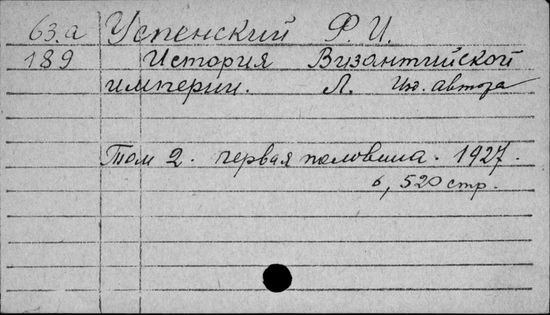 63.а Успенский Ф. И.
189 История Византийской
империи. Л. Изд. автора
Том 2. первая половина. 1927.
6, 520 стр.